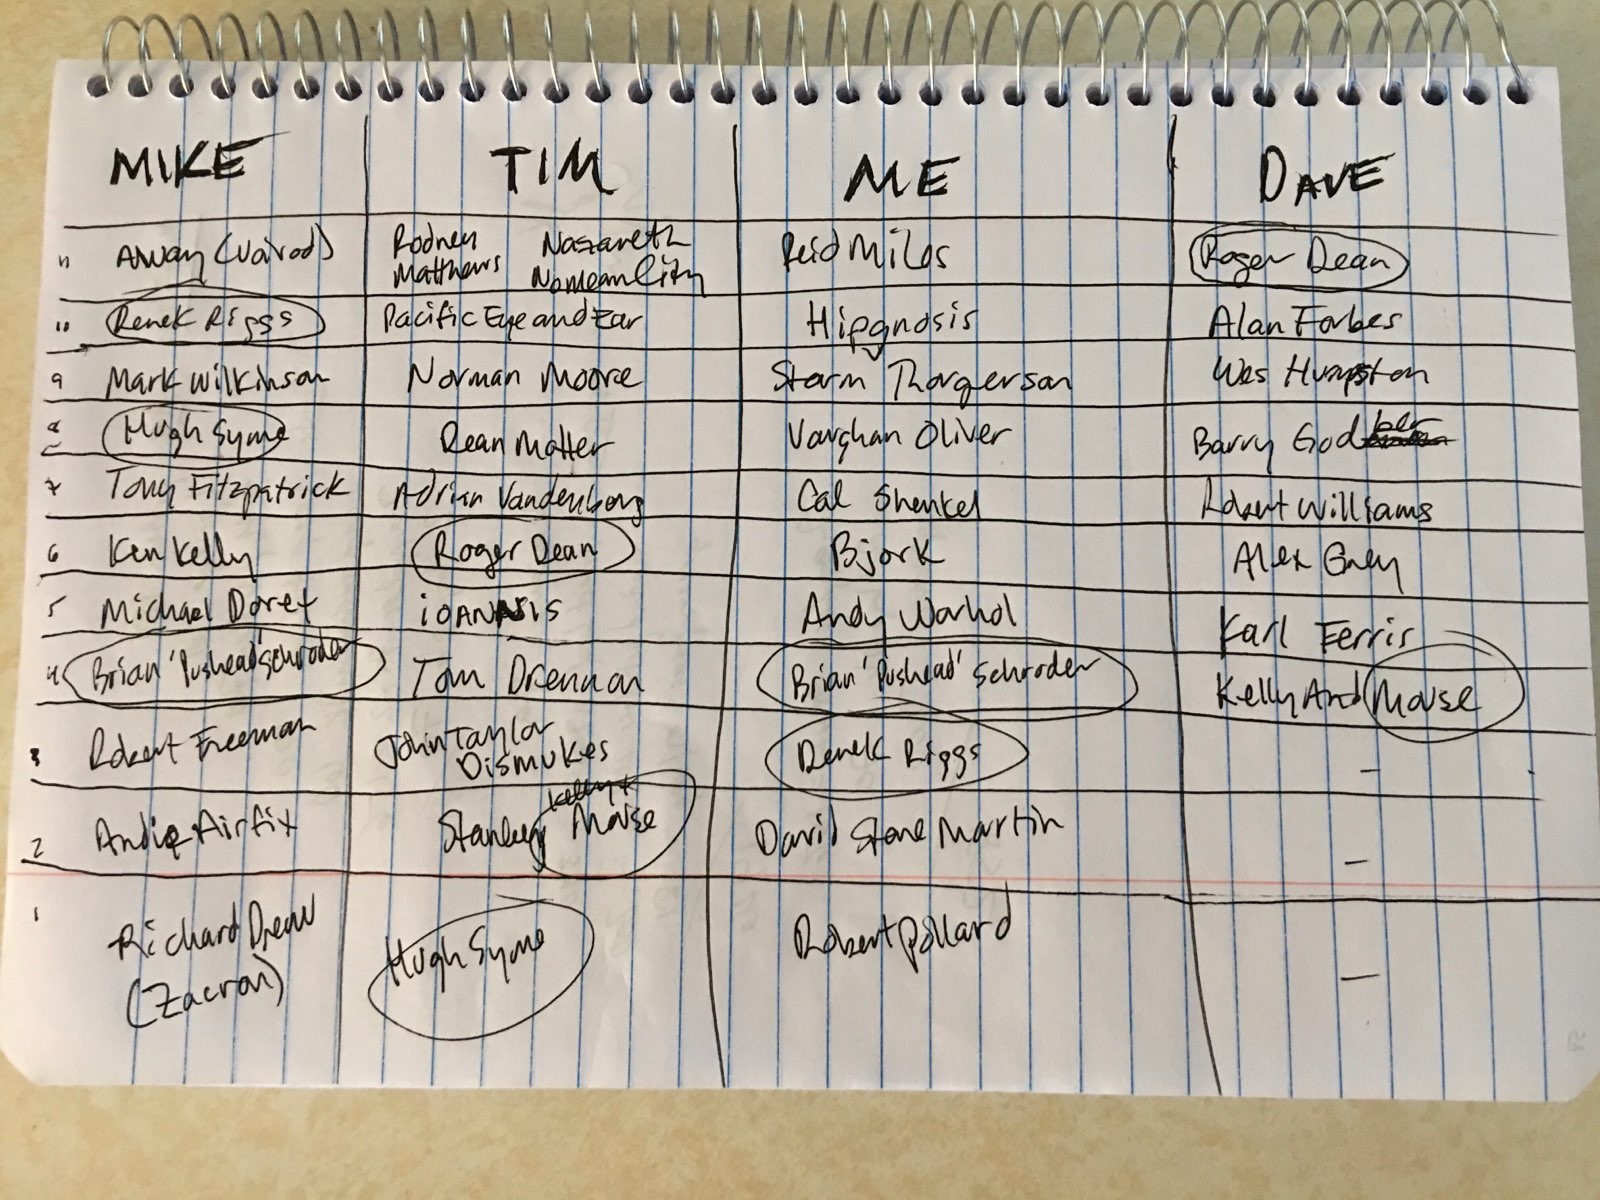 MIKE TIM ME DAVE
11 Away (Voivod) Rodney Matthews Nazareth NomeanCity Reid Miles Roger Dean
10 Derek Riggs Pacific Eye and Ear Hipgnosis Alan Forbes
9 Mark Wilkinson Norman Moore Storm Thorgerson Wes Humpston
8 Hugh Syme Dean Matter Vaughan Oliver Barry Godber
7 Tony Fitzpatrick Adrian Vandenberg Cal Shenkel Robert Williams
6 Ken Kelly Roger Dean Bjork Alex Grey
5 Michael Doret iOANNIS Andy Warhol Karl Ferris
4 Brian 'Pushead' Schroder Tom Drennan Brian 'Pushead' Schroder Kelly And Mouse
3 Robert Freeman John Taylor Dismukes Derek Riggs –
2 Andie Airfix Stanley Kelly + Mouse David Stone Martin –
1 Richard Drew (Zacron) Hugh Syme Robert Pollard –